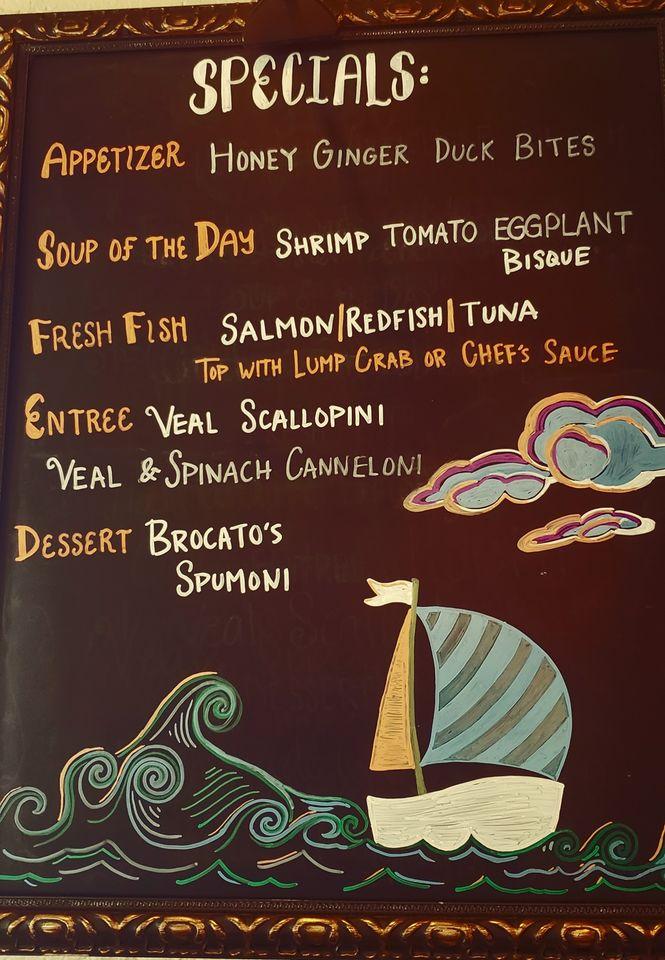 SPECIALS:
APPETIZER HONEY GINGER DUCK BITES
SOUP OF THE DAY SHRIMP TOMATO EGGPLANT
BISQUE
FRESH FISH SALMON|REDFISH|TUNA
TOP WITH LUMP CRAB OR CHEF'S SAUCE
ENTREE VEAL SCALLOPINI
VEAL & SPINACH CANNELONI
DESSERT BROCATO'S
SPUMONI